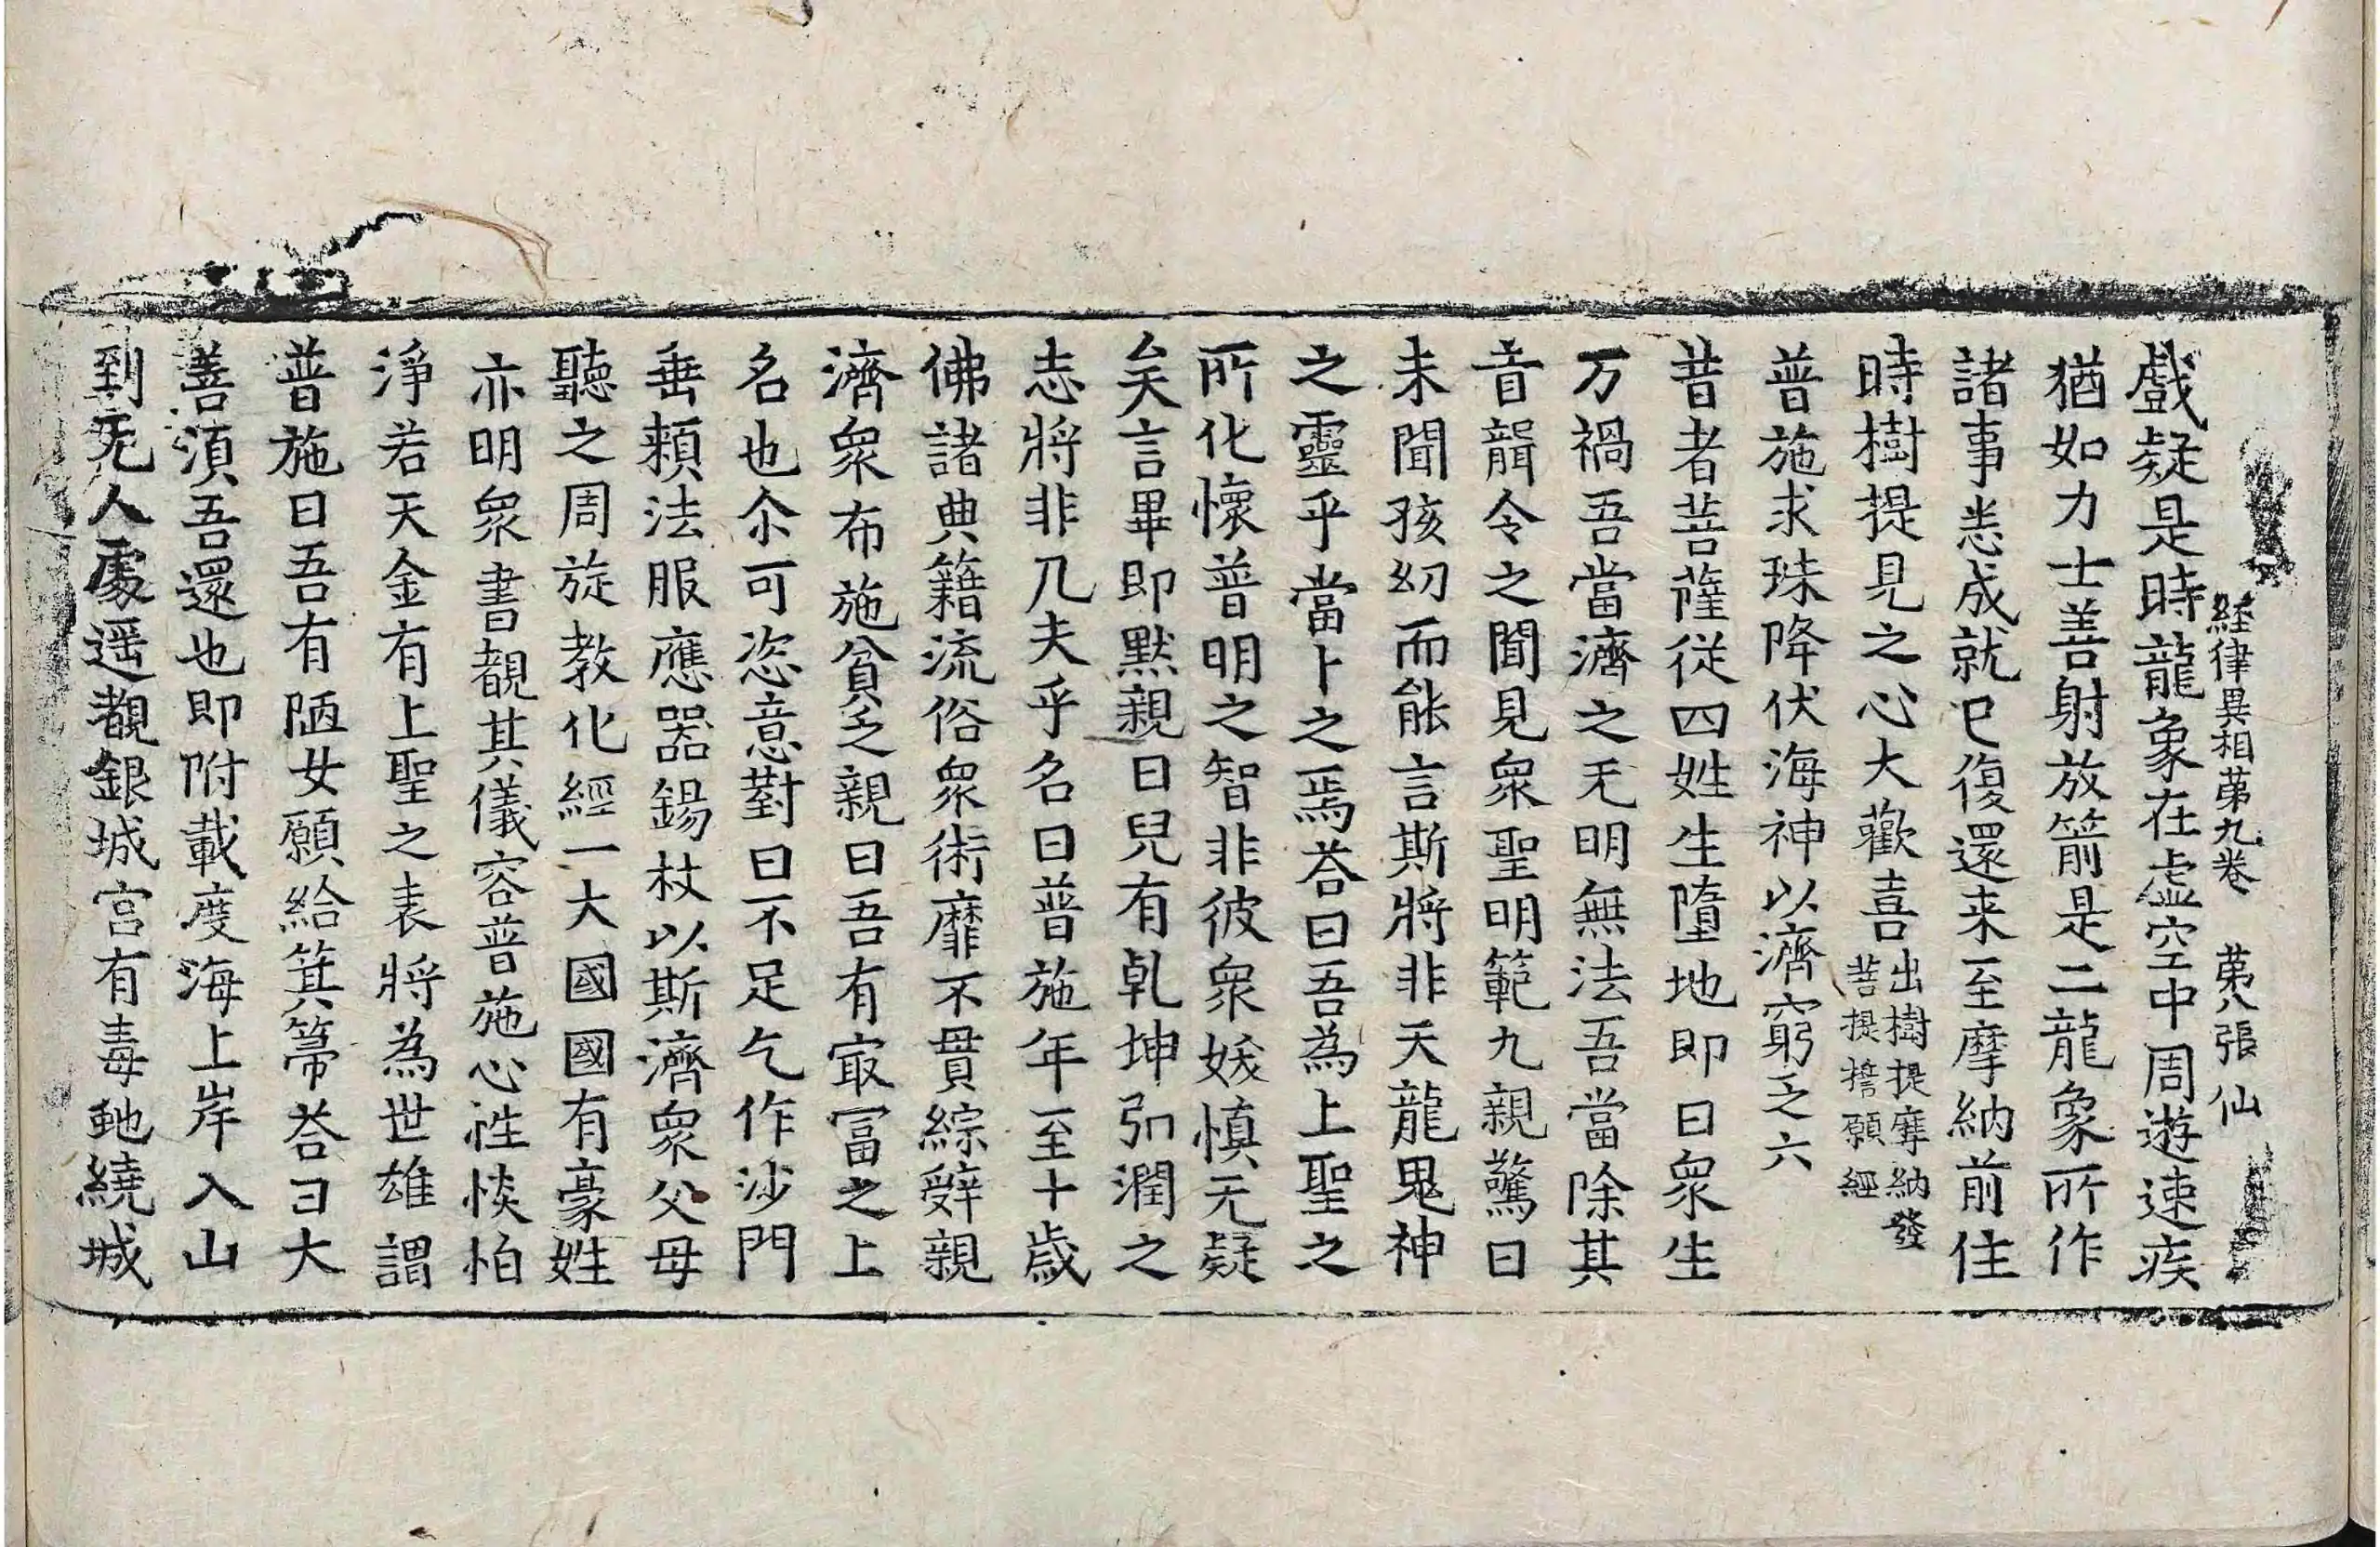 経律異相苐九卷 苐八張 仙
戲疑是時龍象在虛空中周遊速疾
猶如力士善射放箭是二龍象所作
諸事悉成就已復還来至摩納前住
時樹提見之心大歡喜出樹提摩納發菩提擔願經
普施求珠降伏海神以濟窮乏六
昔者菩薩従四姓生墮地即曰衆生
万禍吾當濟之无明無法吾當除其
音聲令之聞見衆聖明範九親驚曰
未聞孩幼而能言斯將非天龍鬼神
之靈乎當卜之焉荅曰吾為上聖之
所化懷普明之智非彼衆妖慎无疑
矣言畢即黙親曰兒有乹坤弘潤之
志將非凡夫乎名曰普施年至十歳
佛諸典籍流俗衆術靡不貫綜辤親
濟衆布施貧乏親曰吾有冣冨之上
名也尒可恣意對曰不足乞作沙門
垂賴法服應器錫杖以斯濟衆父母
聽之周旋教化經一大國國有豪姓
亦明衆書覩其儀容普施心性惔怕
淨若天金有上聖之表將為世雄謂
普施曰吾有陋女願給箕箒荅曰大
善湏吾還也即附載度海上岸入山
到无人處遥覩銀城宮有毒虵繞城